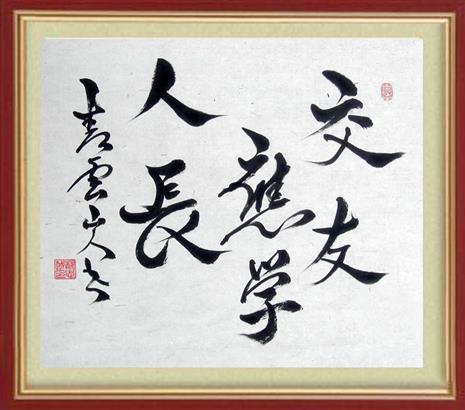 交友
應学
人長
青雲山人书